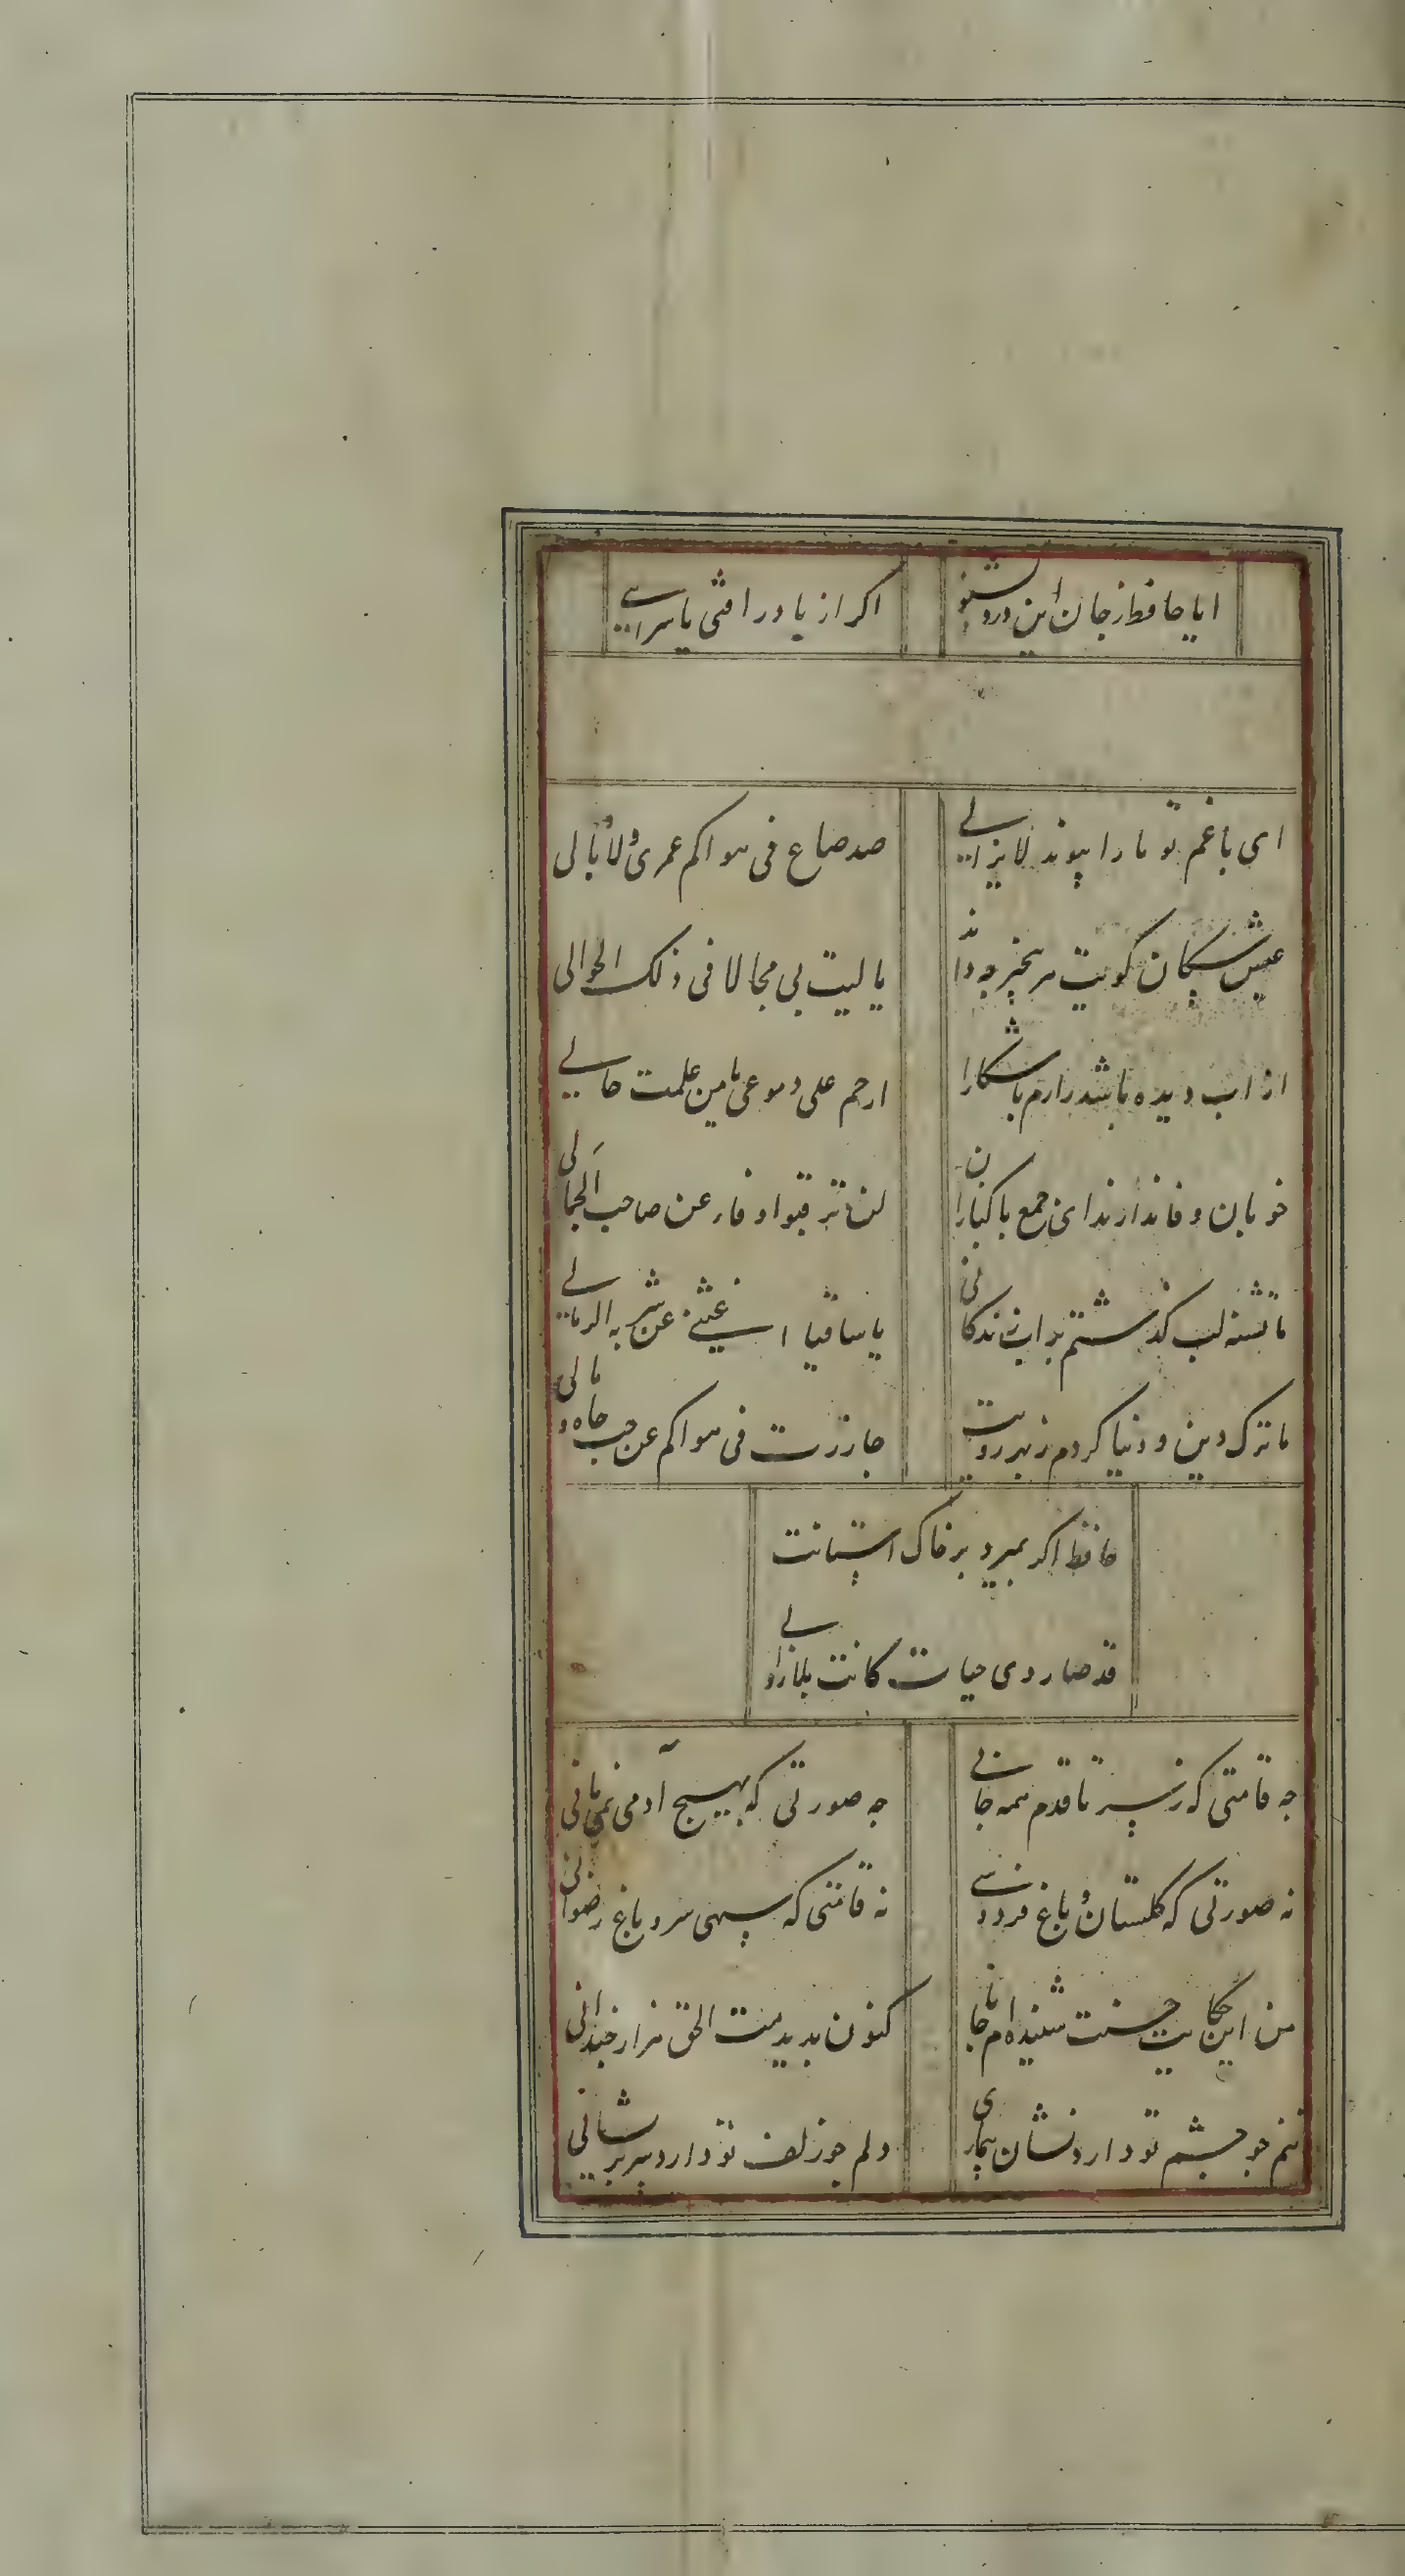 ایا حافظ ز جان این درد بشنو
اکر از پا در افتی یا سرایی
ای با غم تو ما را پیوند لایزالی
صد ضاع فی هواکم عمری و لا ابالی
عیش سکان کویت هر بیخبر چه داند
یا لیت لی مجالا فی ذلک الحوالی
از اب دیده باشد رازم باشکارا
ارحم علی دموعی یامن علمت حالی
خوبان وفا ندارند ای جمع باکبازان
لن ترقبوا وفاء عن صاحب الجمالی
ما تشنه لب کذشتم بر اب زندکانی
یا ساقیا اغثنی عن شربه الرمالی
ما ترک دین و دنیا کردم ز بهر رویت
جارزت فی هواکم عن حب جاه و مالی
حافظ اکر بمیرد بر خاک استانت
قد صار ذی حیات کانت بلازوالی
چه قامتی که ز سر تا قدم همه جانی
چه صورتی که بهیچ آدمی نمی‌مانی
نه صورتی که کلستان و باغ فردوسی
نه قامتی که سهی سرو باغ رضوانی
من این حکایت حسنت شنیده‌ام جانا
کنون بدیدمت الحق هزار چندانی
تنم چو چشم تو دارد نشان بیماری
دلم چو زلف تو دارد سر پریشانی